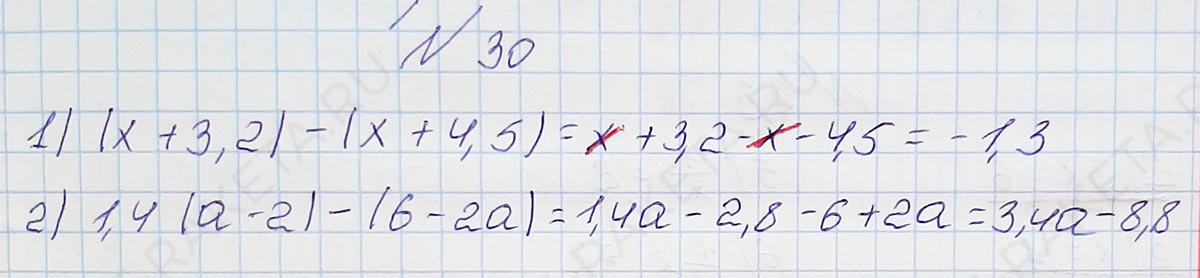 № 30
1) (x + 3,2) - (x + 4,5) = x + 3,2 - x - 4,5 = -1,3
2) 1,4 (a - 2) - (6 - 2a) = 1,4a - 2,8 - 6 + 2a = 3,4a - 8,8